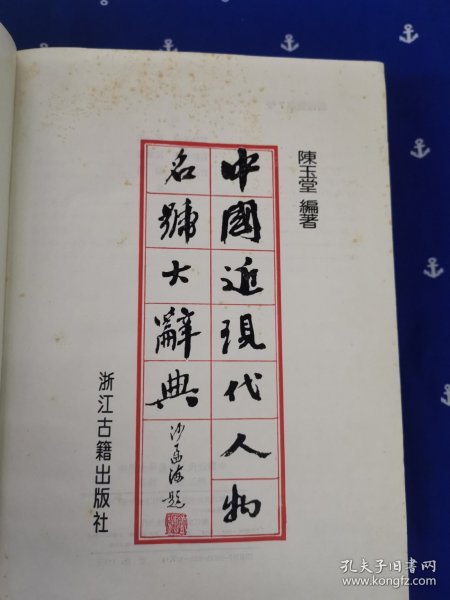 陳玉堂 編著
中國近現代人物
名號大辭典
沙孟海題
浙江古籍出版社
孔夫子旧书网
www.kongfz.com